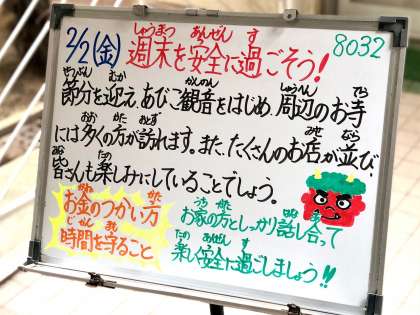 2/2(金) 週末を安全に過ごそう! 8032
しゅうまつ あんぜん す
節分を迎え、あびこ観音をはじめ、周辺のお寺
せつぶん むか かんのん しゅうへん てら
には多くの方が訪れます。また、たくさんのお店が並び、
おお かた おとず みせ なら
皆さんも楽しみにしていることでしょう。
みな たの
お金のつかい方
かね かた
時間を守ること
じかん まも
お家の方としっかり話し合って
うち かた はな あ
楽しく安全に過ごしましょう!!
たの あんぜん す